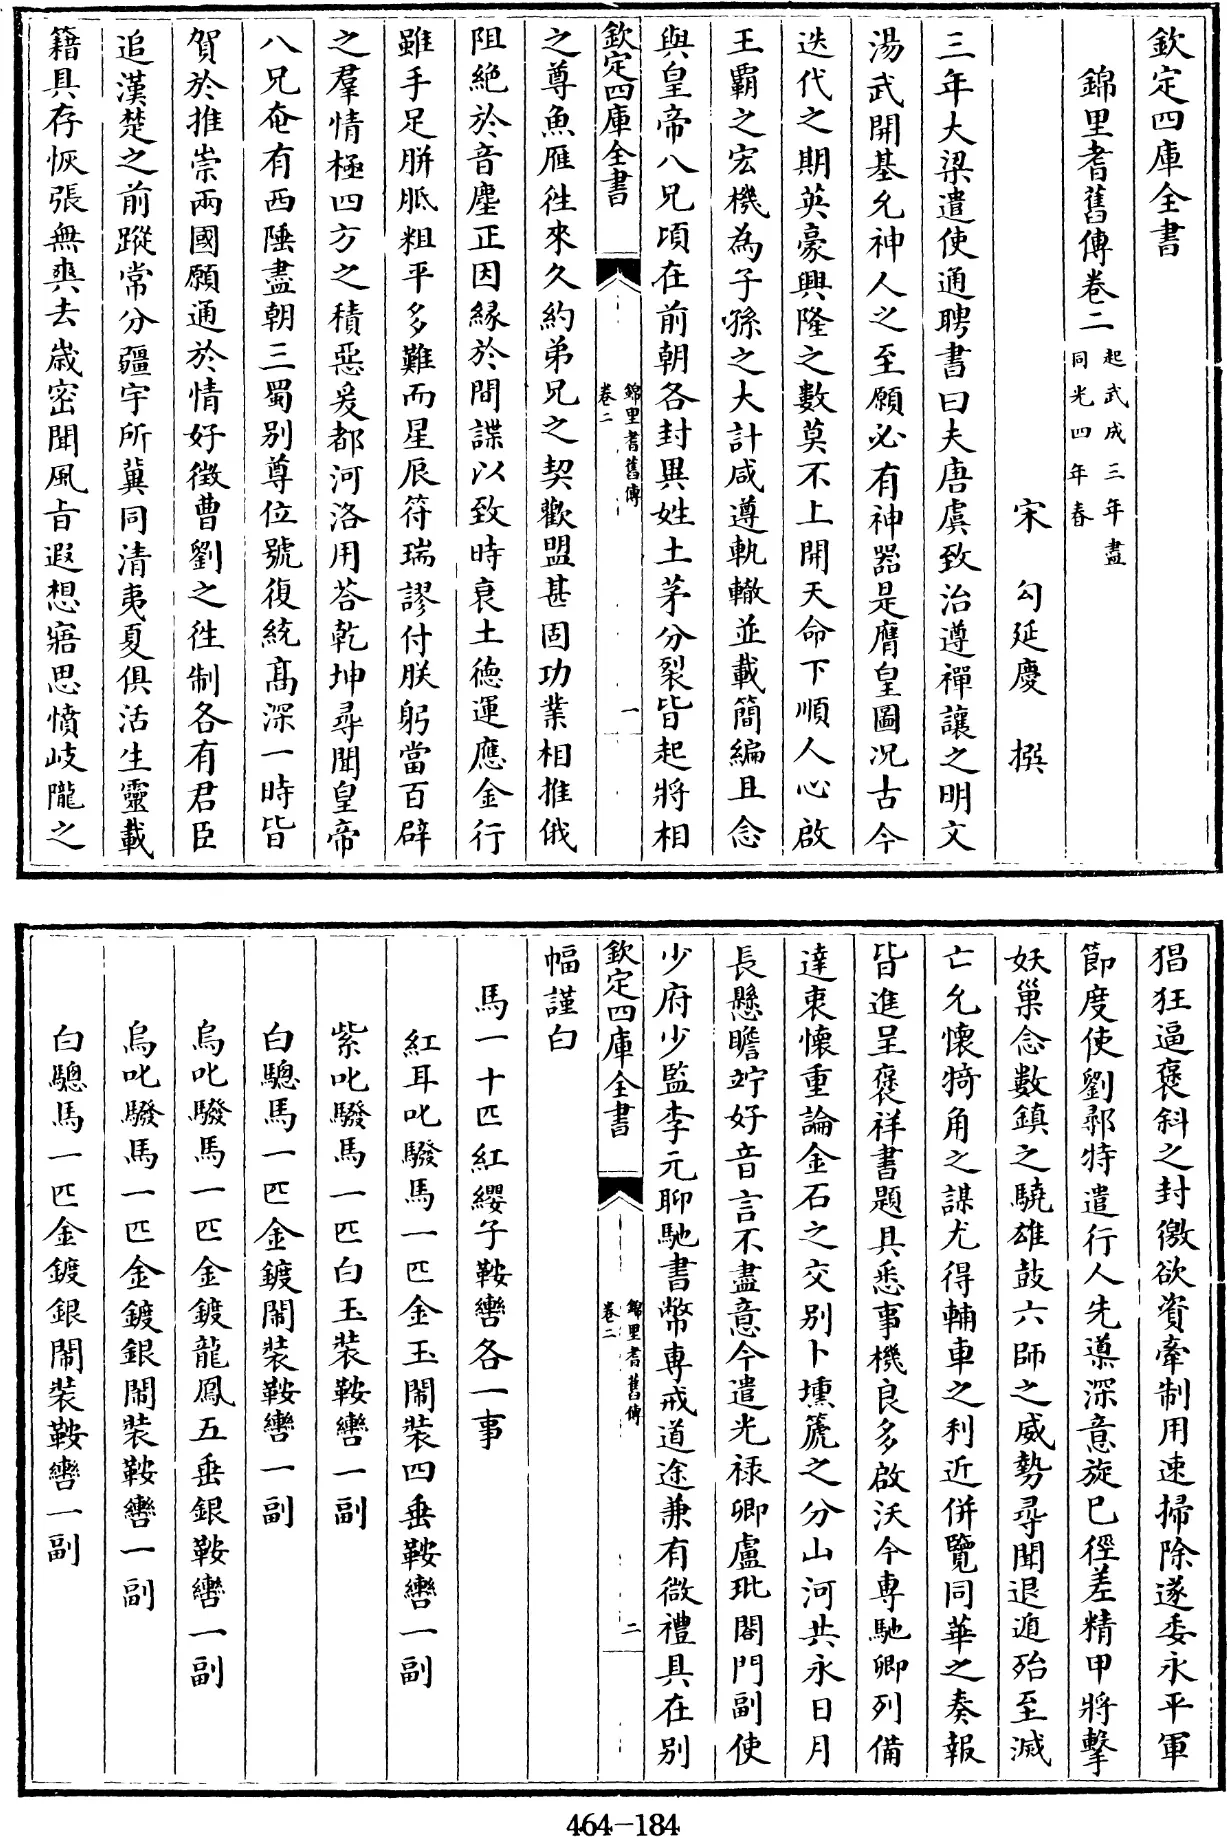 欽定四庫全書
錦里耆舊傳卷二 起武成三年盡同光四年春
宋 勾延慶 撰
三年大梁遣使通聘書曰夫唐虞致治遵禪讓之明文
湯武開基允神人之至願必有神器是膺皇圖況古今
迭代之期英豪興隆之數莫不上開天命下順人心啟
王霸之宏機為子孫之大計咸遵軌轍並載簡編且念
與皇帝八兄頃在前朝各封異姓土茅分裂皆起將相
欽定四庫全書
錦里耆舊傳
卷二
一
之尊魚雁往來久約弟兄之契歡盟甚固功業相推俄
阻絶於音塵正因縁於間諜以致時衰土徳運應金行
雖手足胼胝粗平多難而星辰符瑞謬付朕躬當百辟
之羣情極四方之積惡爰都河洛用荅乾坤尋聞皇帝
八兄奄有西陲盡朝三蜀别尊位號復統髙深一時皆
賀於推崇兩國願通於情好徵曹劉之往制各有君臣
追漢楚之前蹤常分疆宇所冀同清夷夏俱活生靈載
籍具存恢張無爽去嵗密聞風旨遐想寤思憤岐隴之
猖狂逼褒斜之封徼欲資牽制用速掃除遂委永平軍
節度使劉鄩特遣行人先導深意旋已徑差精甲將擊
妖巢念數鎮之驍雄鼓六師之威勢尋聞退遁殆至滅
亡允懷犄角之謀尤得輔車之利近併覽同華之奏報
皆進呈褒祥書題具悉事機良多啟沃今専馳卿列備
達衷懷重論金石之交别卜壎篪之分山河共永日月
長懸瞻竚好音言不盡意今遣光禄卿盧玭閤門副使
少府少監李元聊馳書幣専戒道途兼有微禮具在别
欽定四庫全書
錦里耆舊傳
卷二
二
幅謹白
馬一十匹紅纓子鞍轡各一事
紅耳叱驋馬一匹金玉閙裝四垂鞍轡一副
紫叱驋馬一匹白玉裝鞍轡一副
白驄馬一匹金鍍閙裝鞍轡一副
烏叱驋馬一匹金鍍龍鳳五垂銀鞍轡一副
烏叱驋馬一匹金鍍銀閙裝鞍轡一副
白驄馬一匹金鍍銀閙裝鞍轡一副
464-184